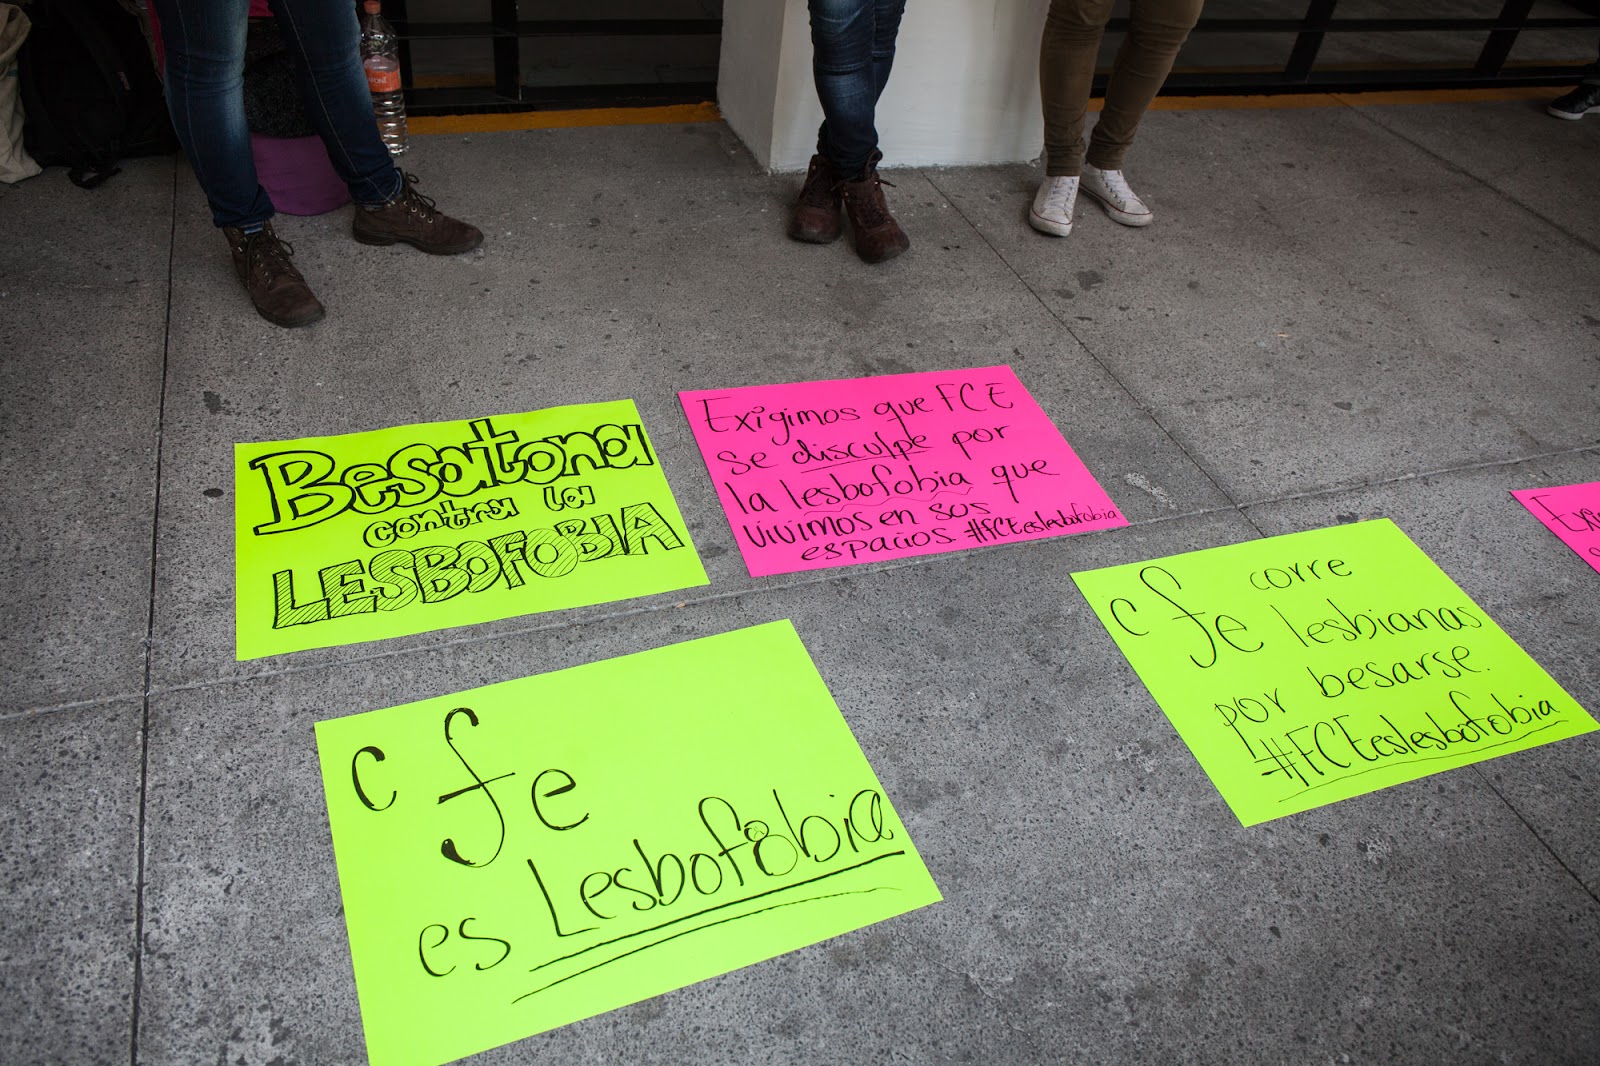 Besatona
contra la
LESBOFOBIA
Exigimos que FCE
se disculpe por
la lesbofobia que
vivimos en sus
espacios #FCEeslesbofobia
cfe
es Lesbofobia
cfe corre
lesbianas
por besarse.
#FCEeslesbofobia